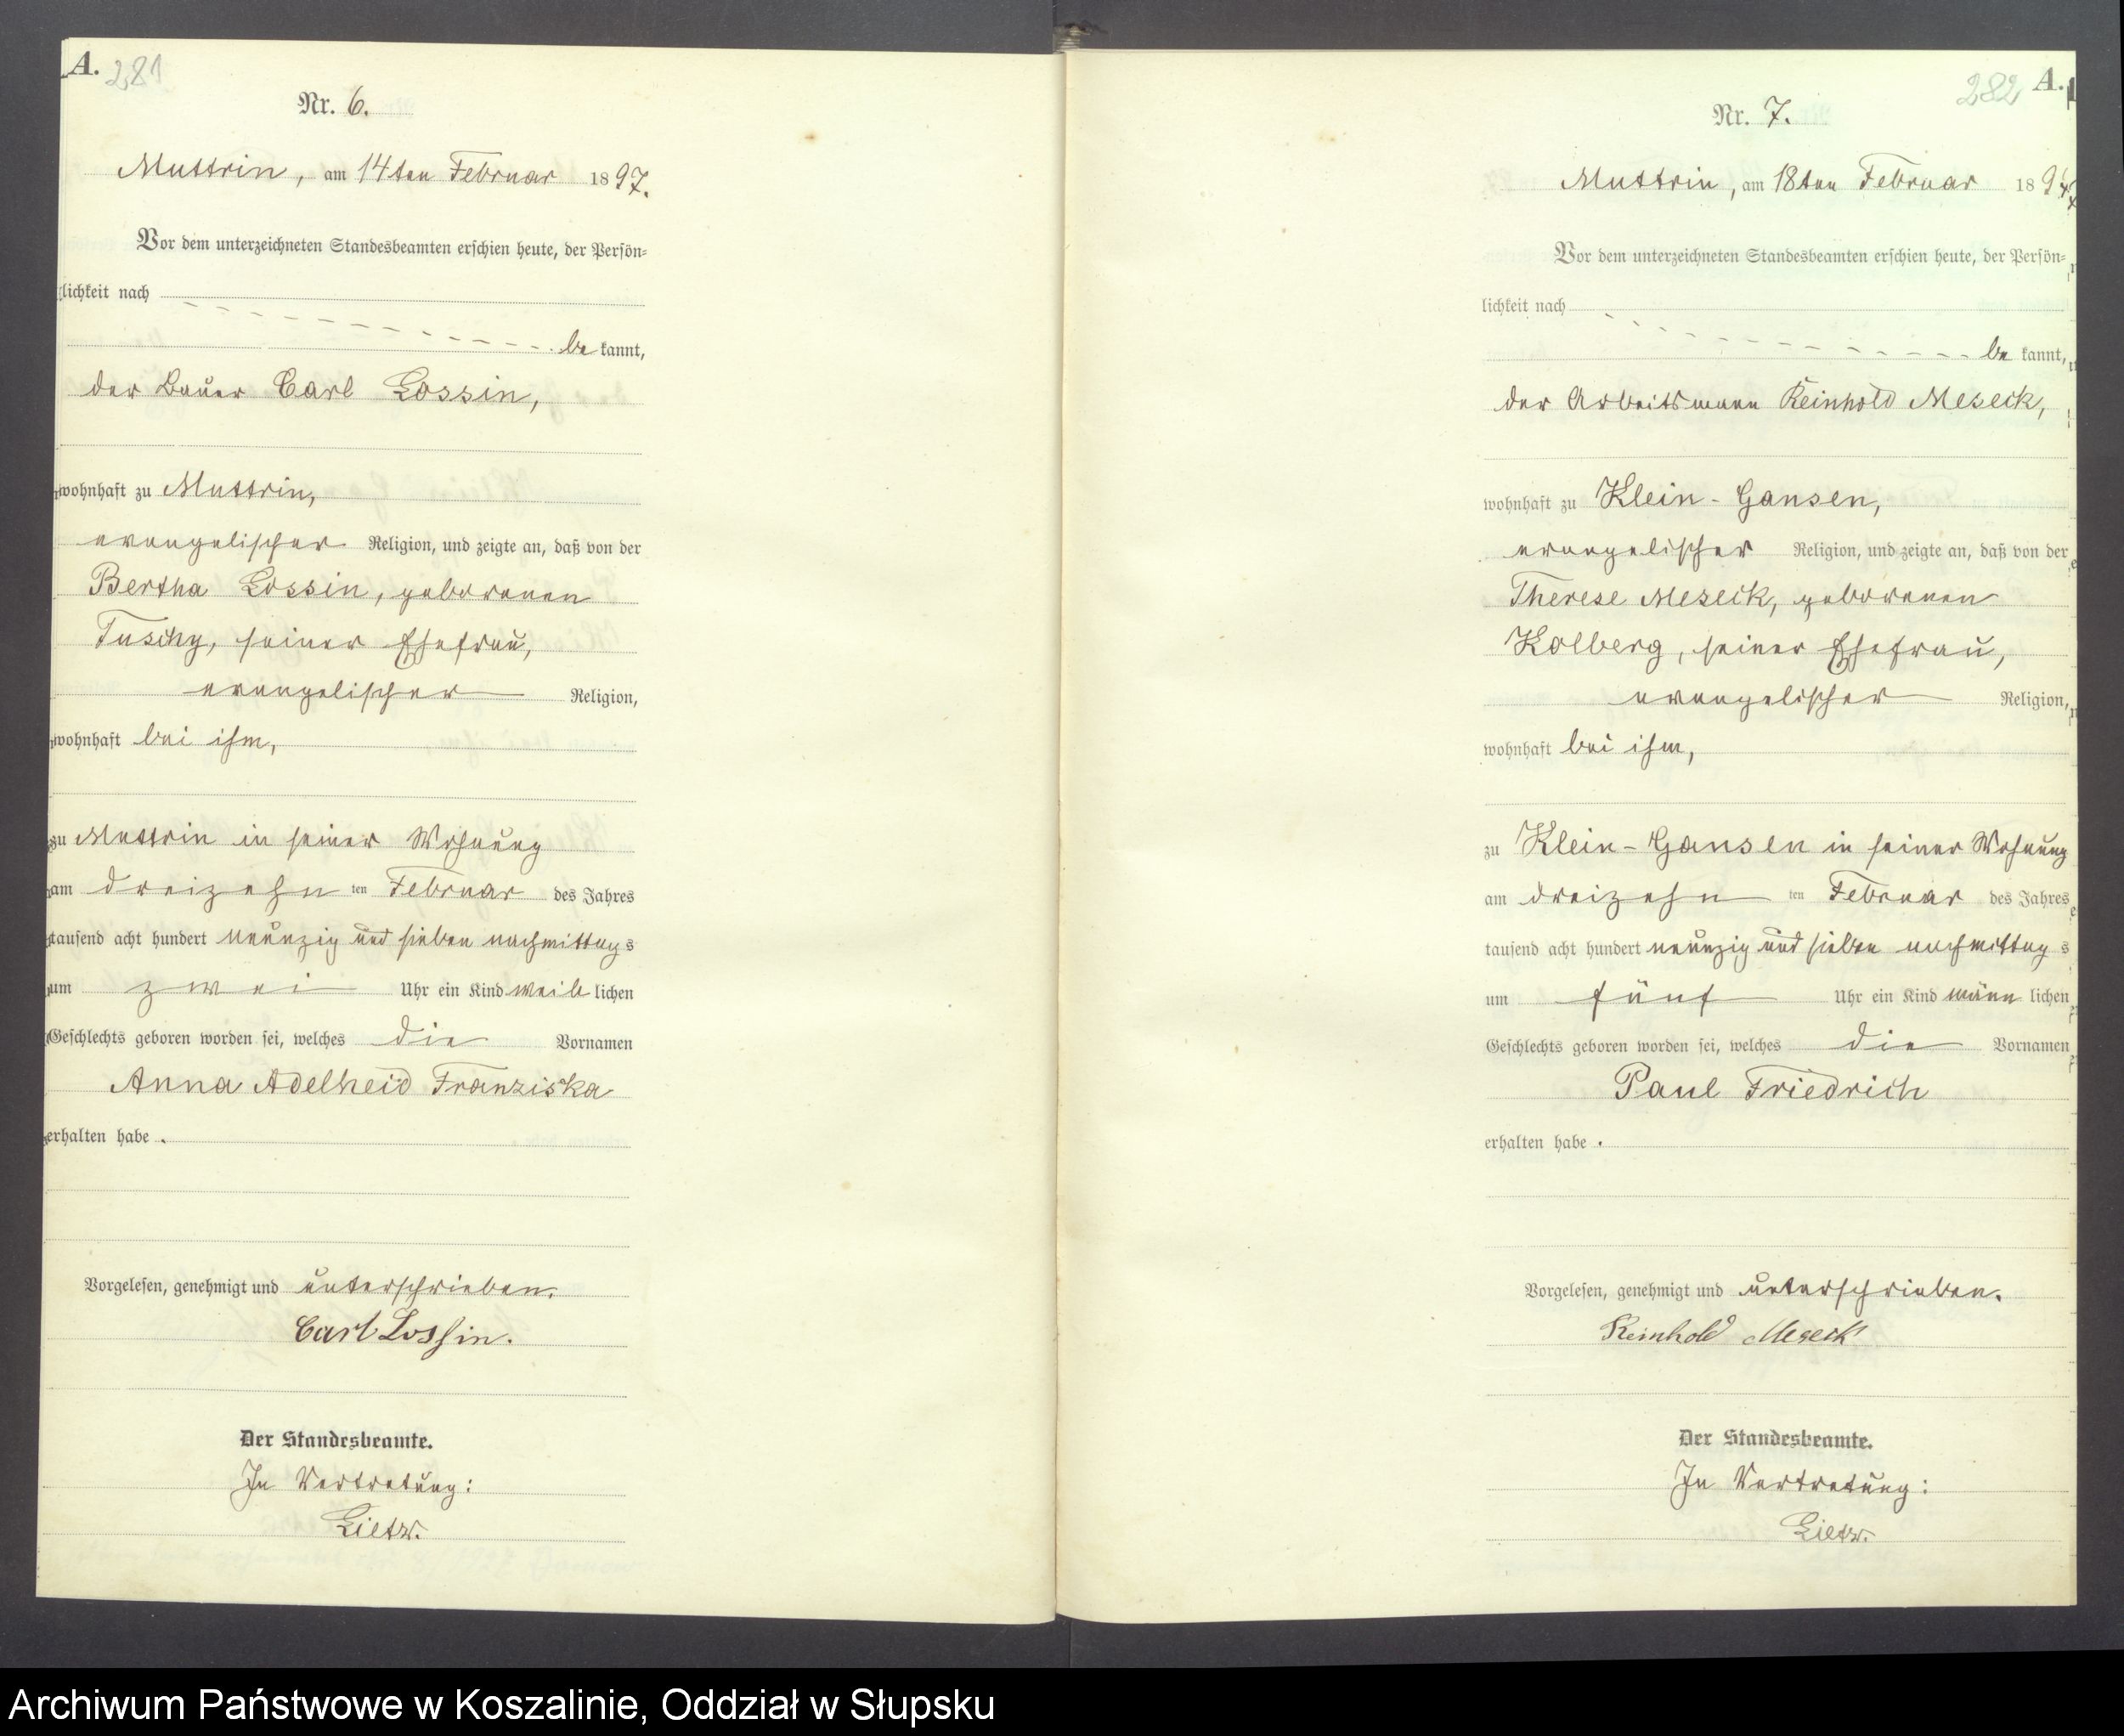 A. 281
Nr. 6.
Muttrin, am 14ten Februar 1897.
Vor dem unterzeichneten Standesbeamten erschien heute, der Persön-
lichkeit nach
be kannt,
der Bauer Carl Lossin,
wohnhaft zu Muttrin,
evangelischer Religion, und zeigte an, daß von der
Bertha Lossin, geborenen
Tuschy, seiner Ehefrau,
evangelischer Religion,
wohnhaft bei ihm,
zu Muttrin in seiner Wohnung
am dreizehn ten Februar des Jahres
tausend acht hundert neunzig und sieben nachmittags
um zwei Uhr ein Kind weib lichen
Geschlechts geboren worden sei, welches die Vornamen
Anna Adelheid Franziska
erhalten habe.
Vorgelesen, genehmigt und unterschrieben.
Carl Lossin.
Der Standesbeamte.
In Vertretung:
Lietz.
282 A.
Nr. 7.
Muttrin, am 18ten Februar 1897
Vor dem unterzeichneten Standesbeamten erschien heute, der Persön-
lichkeit nach
be kannt,
der Arbeitsmann Reinhold Meseck,
wohnhaft zu Klein-Gansen,
evangelischer Religion, und zeigte an, daß von der
Therese Meseck, geborenen
Kolberg, seiner Ehefrau,
evangelischer Religion,
wohnhaft bei ihm,
zu Klein-Gansen in seiner Wohnung
am dreizehn ten Februar des Jahres
tausend acht hundert neunzig und sieben nachmittag s
um fünf Uhr ein Kind männ lichen
Geschlechts geboren worden sei, welches die Vornamen
Paul Friedrich
erhalten habe.
Vorgelesen, genehmigt und unterschrieben.
Reinhold Meseck
Der Standesbeamte.
In Vertretung:
Lietz.
Archiwum Państwowe w Koszalinie, Oddział w Słupsku